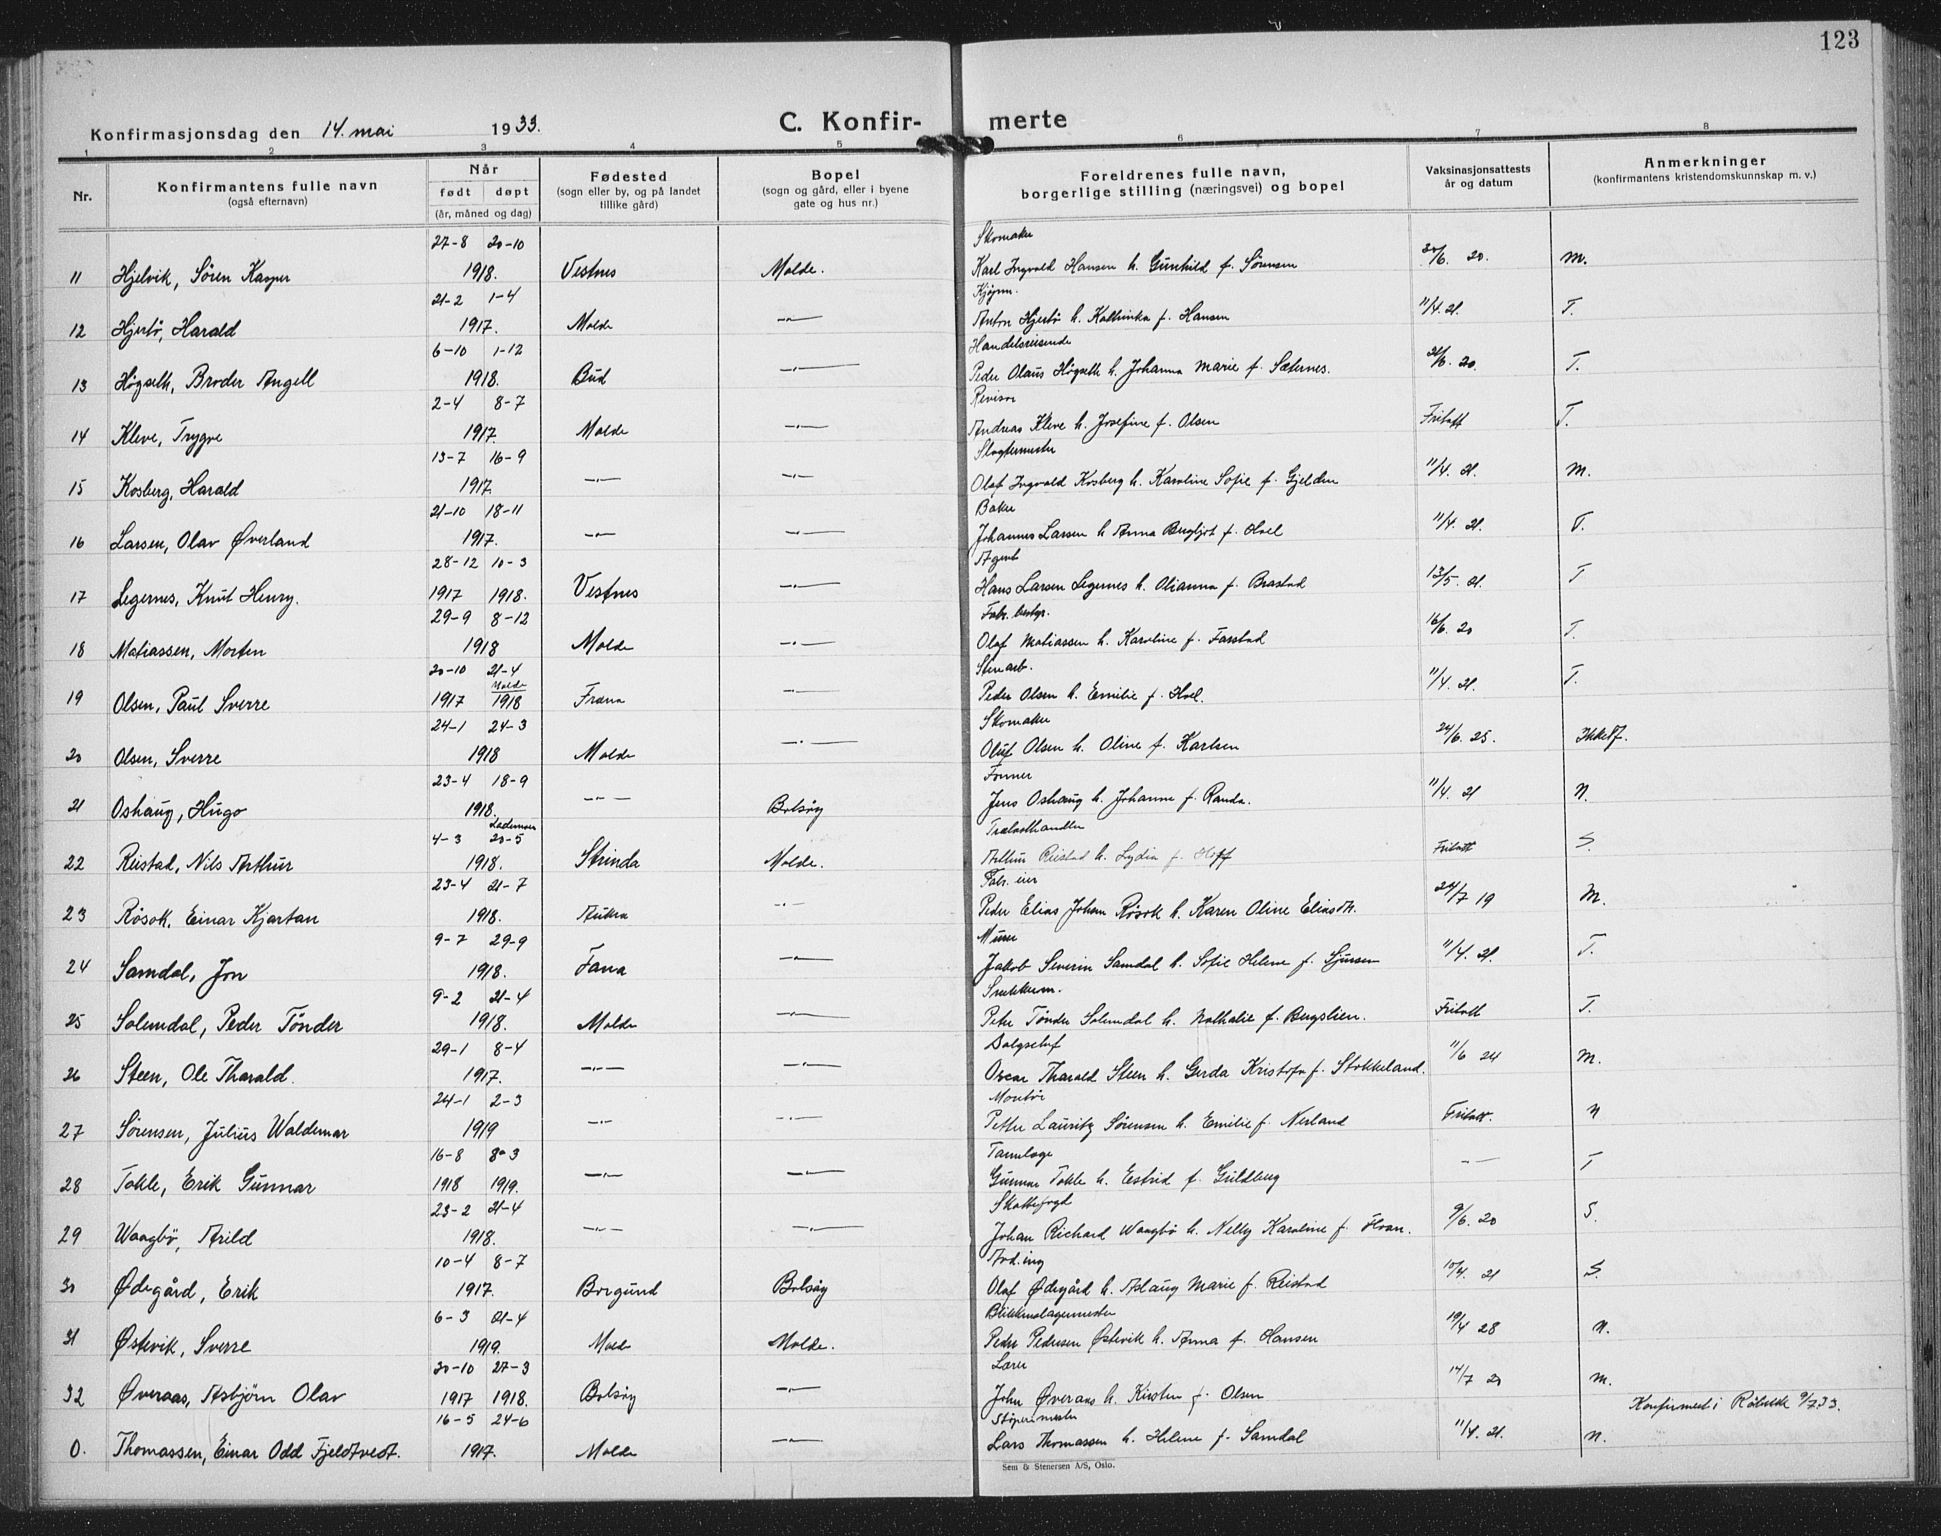 123
Konfirmasjonsdag den 14. mai 1933.
C. Konfir- merte
1 2 3 4 5 6 7 8
Nr.
Konfirmantens fulle navn
(også efternavn)
Når
født døpt
(år, måned og dag)
Fødested
(sogn eller by, og på landet
tillike gård)
Bopel
(sogn og gård, eller i byene
gate og hus nr.)
Foreldrenes fulle navn,
borgerlige stilling (næringsvei) og bopel
Vaksinasjonsattests
år og datum
Anmerkninger
(konfirmantens kristendomskunnskap m. v.)
27-8 20-10 Skomaker
11 Hjelvik, Sören Kasper 1918. Vestnes Molde. Karl Ingvald Hansen h. Gunhild f. Sörensen 20. M.
21-2 1-4 Kjøpm.
12 Hjertö, Harald 1917. Molde —"— Anton Hjertö h. Kathinka f. Hansen 11/4. 21. T.
6-10 1-12 Handelsreisende
13 Högseth, Broder Angell 1918. Bud —"— Peder Olaus Högseth h. Johanna Marie f. Sæternes. 20. T.
2-4 8-7 Revisor
14 Kleve, Trygve 1917. Molde —"— Andreas Kleve h. Josefine f. Olsen Fritatt T.
13-7 16-9 Slagtermester
15 Kosberg, Harald 1917. —"— —"— Olaf Ingvald Kosberg h. Karoline Sofie f. Gjelden 11/4. 21. M.
21-10 18-11 Baker
16 Larsen, Olav Øverland 1917. —"— —"— Johannes Larsen h. Anna Bergljot f. Hoel 11/4. 21. T.
28-12 10-3 Agent
17 Legernes, Knut Henry. 1917 1918. Vestnes —"— Hans Larsen Legernes h. Olianna f. Brastad 13/5. 21. T
29-9 8-12 Fabr. bestyr.
18 Matiassen, Morten 1918 Molde —"— Olaf Matiassen h. Karoline f. Farstad 16/6. 20 T.
20-10 21-4 Stenarb.
Molde
19 Olsen, Paul Sverre 1917 1918 Fræna —"— Peder Olsen h. Emilie f. Hoel. 11/4. 21. T.
24-1 24-3 Skomaker
20 Olsen, Sverre 1918 Molde —"— Oluf Olsen h. Oline f. Karlsen 24/6. 25.
23-4 18-9 Former
21 Oshaug, Hugo 1918. —"— Bolsöy Jens Oshaug h. Johanne f. Randa. 11/4. 21 N.
Lademoen
4-3 20-5 Trælasthandler
22 Reistad, Nils Arthur 1918. Strinda Molde. Arthur Reistad h. Lydia f. Hoff Fritatt S.
23-4 21-7 Fabr. eier
23 Rösok, Einar Kjartan 1918. Aukra —"— Peder Elias Johan Rösok h. Karen Oline Eliasdt. 24/7 19 M.
9-7 29-9 Murer
24 Samdal, Jon 1918. Fana —"— Jakob Severin Samdal h. Sofie Helene f. Sjursen 11/4. 21. T.
9-2 21-4 Snekkerm.
25 Solemdal, Peder Tönder 1918. Molde —"— Peter Tönder Solemdal h. Nathalie f. Bergslien. Fritatt T.
29-1 8-4 Salgschef
26 Steen, Ole Tharald. 1917. —"— —"— Oscar Tharald Steen h. Gerda Kristofa f. Stokkeland. 11/6 24 M.
24-1 2-3 Montör
27 Sørensen, Julius Waldemar 1919 —"— —"— Petter Lauritz Sørensen h. Emilie f. Nerland Fritatt. N
16-8 8-3 Tannlæge
28 Tokle, Erik Gunnar 1918 1919. —"— —"— Gunnar Tokle h. Estrid f. Guldberg —"— T
23-2 21-4 Skattefogd
29 Waagbö, Arild 1918. —"— —"— Johan Richard Waagbö h. Nelly Karoline f. 9/6. 20 S.
10-4 8-7 Avd.ing
30 Ødegård, Erik 1917. Borgund Bolsöy Olaf Ødegård h. Aslaug Marie f. Reistad 10/4. 21 S.
6-3 21-4 Blikkenslagermester
31 Østevik, Sverre 1919. Molde Molde. Peder Pedersen Østevik h. Anna f. Hansen 19/4 28 N.
20-10 27-3 Lærer
32 Øveraas, Asbjørn Olav 1917 1918. Bolsöy —"— John Øveraas h. Kirsten f. Olsen 14/7 20 M.
Konfirmert i 9/7 33.
16-5 24-6 Støperimester
0. Thomassen, Einar Odd Fjeldtvedt. 1917. Molde —"— Lars Thomassen h. Helene f. Samdal 11/4. 21. N.
Sem & Stenersen A/S, Oslo.